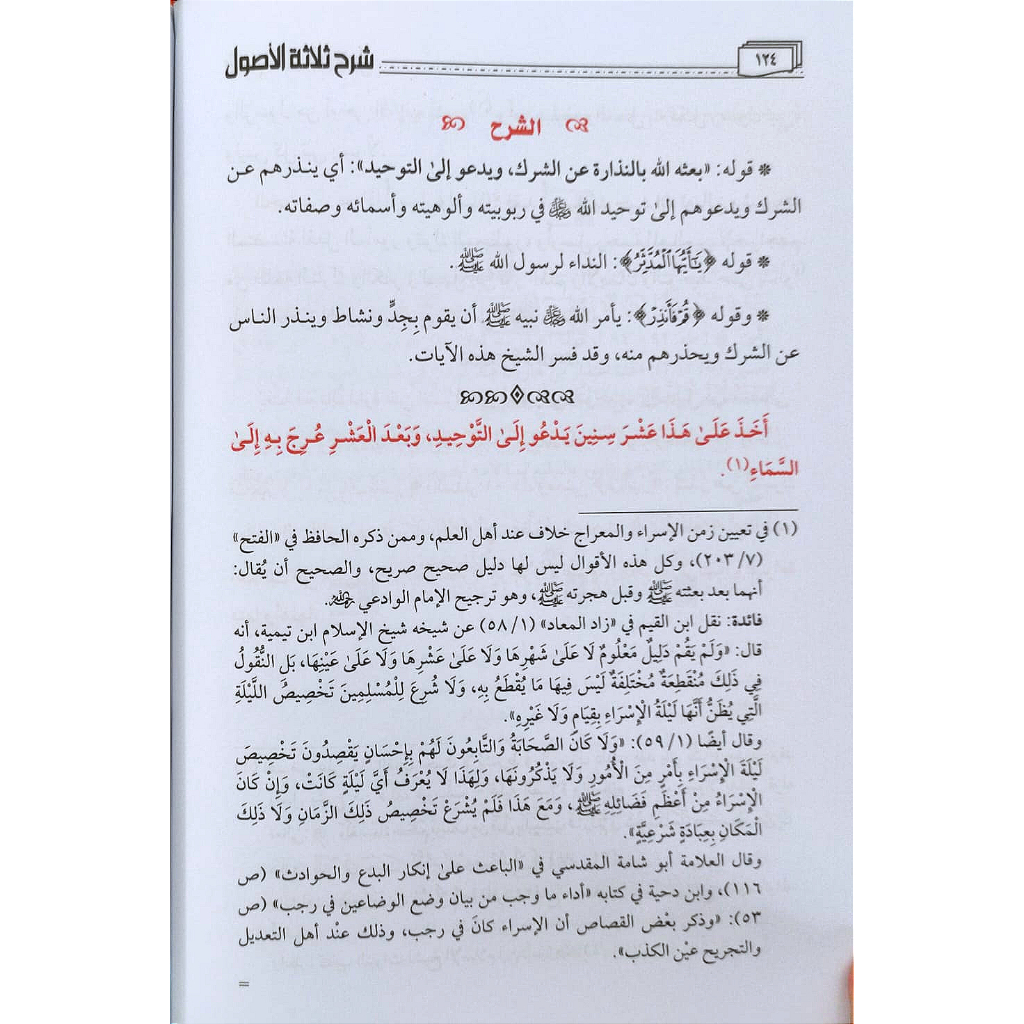 شرح ثلاثة الأصول
١٢٤
الشرح
* قوله: «بعثه الله بالنذارة عن الشرك، ويدعو إلىٰ التوحيد»: أي ينذرهم عن
الشرك ويدعوهم إلىٰ توحيد الله ﷻ في ربوبيته وألوهيته وأسمائه وصفاته.
* قوله ﴿يَٰٓأَيُّهَا ٱلْمُدَّثِّرُ﴾: النداء لرسول الله ﷺ.
* وقوله ﴿قُرْفَأَنذِرْ﴾: يأمر الله ﷻ نبيه ﷺ أن يقوم بِجِدٍّ ونشاط وينذر الناس
عن الشرك ويحذرهم منه، وقد فسر الشيخ هذه الآيات.
أَخَذَ عَلَىٰ هَذَا عَشْرَ سِنِينَ يَدْعُو إِلَىٰ التَّوْحِيدِ، وَبَعْدَ الْعَشْرِ عُرِجَ بِهِ إِلَىٰ
السَّمَاءِ(١).
(١) في تعيين زمن الإسراء والمعراج خلاف عند أهل العلم، وممن ذكره الحافظ في «الفتح»
(٢٠٣/٧)، وكل هذه الأقوال ليس لها دليل صحيح صريح، والصحيح أن يُقال:
أنهما بعد بعثته ﷺ وقبل هجرته ﷺ، وهو ترجيح الإمام الوادعي رحمه الله.
فائدة: نقل ابن القيم في «زاد المعاد» (٥٨/١) عن شيخه شيخ الإسلام ابن تيمية، أنه
قال: «وَلَمْ يَقُمْ دَلِيلٌ مَعْلُومٌ لَا عَلَىٰ شَهْرِهَا وَلَا عَلَىٰ عَشْرِهَا وَلَا عَلَىٰ عَيْنِهَا، بَلِ النُّقُولُ
فِي ذَلِكَ مُنْقَطِعَةٌ مُخْتَلِفَةٌ لَيْسَ فِيهَا مَا يُقْطَعُ بِهِ، وَلَا شُرِعَ لِلْمُسْلِمِينَ تَخْصِيصُ اللَّيْلَةِ
الَّتِي يُظَنُّ أَنَّهَا لَيْلَةُ الْإِسْرَاءِ بِقِيَامٍ وَلَا غَيْرِهِ».
وقال أيضًا (٥٩/١): «وَلَا كَانَ الصَّحَابَةُ وَالتَّابِعُونَ لَهُمْ بِإِحْسَانٍ يَقْصِدُونَ تَخْصِيصَ
لَيْلَةِ الْإِسْرَاءِ بِأَمْرٍ مِنَ الْأُمُورِ وَلَا يَذْكُرُونَهَا، وَلِهَذَا لَا يُعْرَفُ أَيَّ لَيْلَةٍ كَانَتْ، وَإِنْ كَانَ
الْإِسْرَاءُ مِنْ أَعْظَمِ فَضَائِلِهِ ﷺ، وَمَعَ هَذَا فَلَمْ يُشْرَعْ تَخْصِيصُ ذَلِكَ الزَّمَانِ وَلَا ذَلِكَ
الْمَكَانِ بِعِبَادَةٍ شَرْعِيَّةٍ».
وقال العلامة أبو شامة المقدسي في «الباعث علىٰ إنكار البدع والحوادث» (ص
١١٦)، وابن دحية في كتابه «أداء ما وجب من بيان وضع الوضاعين في رجب» (ص
٥٣): «وذكر بعْض القصاص أن الإسراء كانَ في رجب، وذلك عنْد أهل التعديل
والتجريح عيْن الكذب».
=